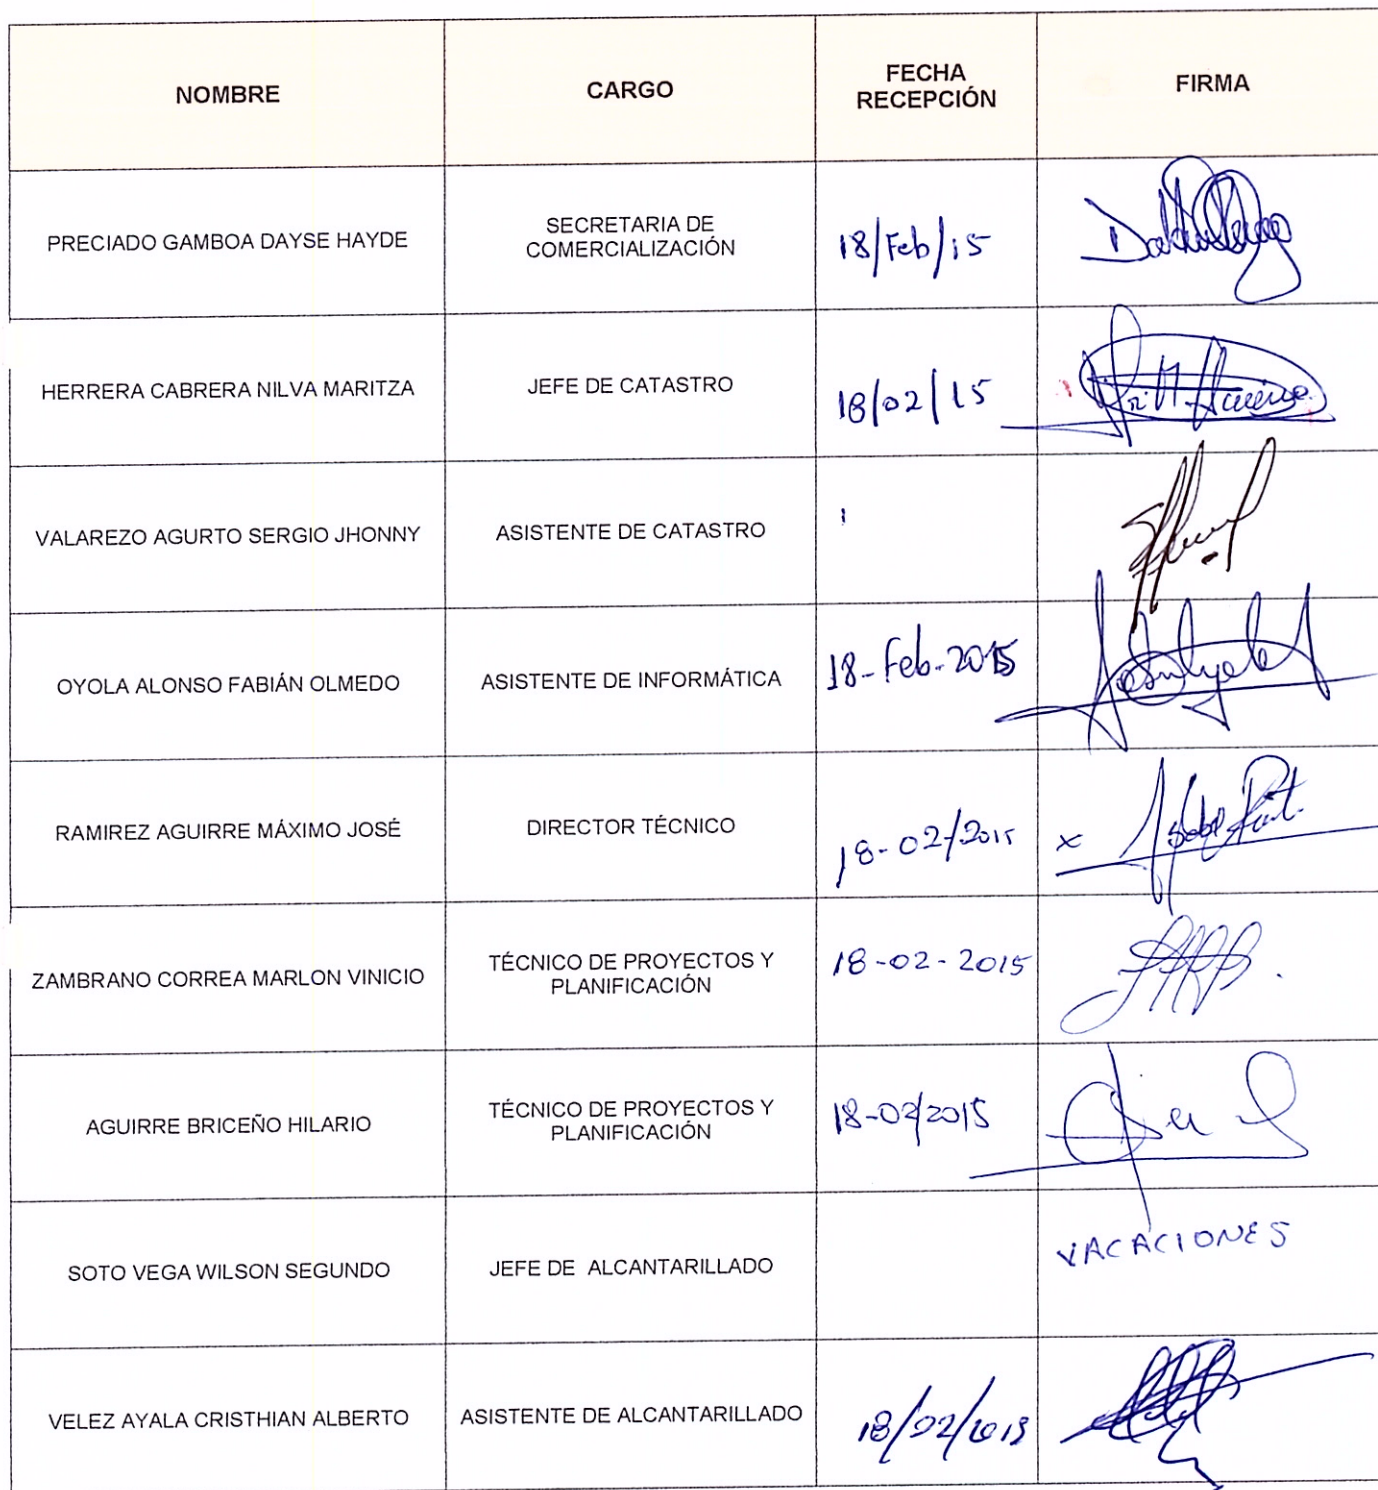 NOMBRE
CARGO
FECHA
RECEPCIÓN
FIRMA
PRECIADO GAMBOA DAYSE HAYDE
SECRETARIA DE
COMERCIALIZACIÓN
18/Feb/15
HERRERA CABRERA NILVA MARITZA
JEFE DE CATASTRO
18/02/15
VALAREZO AGURTO SERGIO JHONNY
ASISTENTE DE CATASTRO
OYOLA ALONSO FABIÁN OLMEDO
ASISTENTE DE INFORMÁTICA
18-Feb-2015
RAMIREZ AGUIRRE MÁXIMO JOSÉ
DIRECTOR TÉCNICO
18-02/2015
x
ZAMBRANO CORREA MARLON VINICIO
TÉCNICO DE PROYECTOS Y
PLANIFICACIÓN
18-02-2015
AGUIRRE BRICEÑO HILARIO
TÉCNICO DE PROYECTOS Y
PLANIFICACIÓN
18-02/2015
SOTO VEGA WILSON SEGUNDO
JEFE DE ALCANTARILLADO
VACACIONES
VELEZ AYALA CRISTHIAN ALBERTO
ASISTENTE DE ALCANTARILLADO